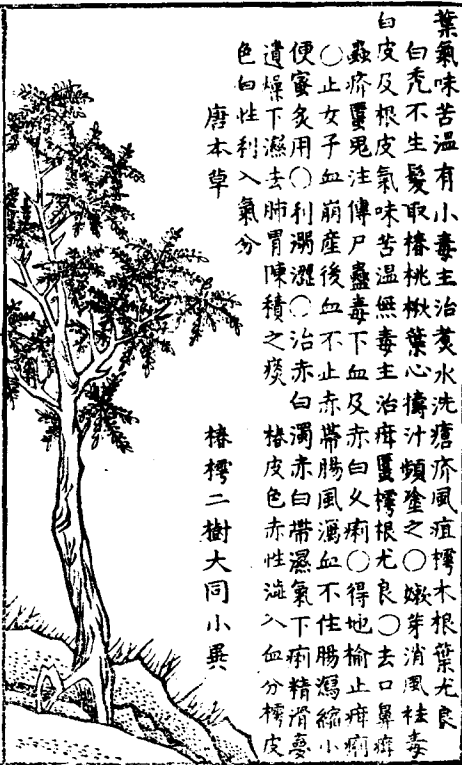 葉氣味苦溫有小毒主治煑水洗瘡疥風疽樗木根葉尤良
白禿不生髮取椿桃楸葉心擣汁頻塗之〇嫩芽消風祛毒
白皮及根皮氣味苦溫無毒主治疳䘌樗根尤良〇去口鼻疳
蟲疥䘌鬼注傳尸蠱毒下血及赤白久痢〇得地榆止疳痢
〇止女子血崩産後血不止赤帶腸風瀉血不住腸瀉縮小
便蜜炙用〇利溺澀〇治赤白濁赤白帶濕氣下痢精滑夢
遺燥下濕去肺胃陳積之痰 椿皮色赤性澁入血分樗皮
色白性利入氣分
唐本草 椿樗二樹大同小異